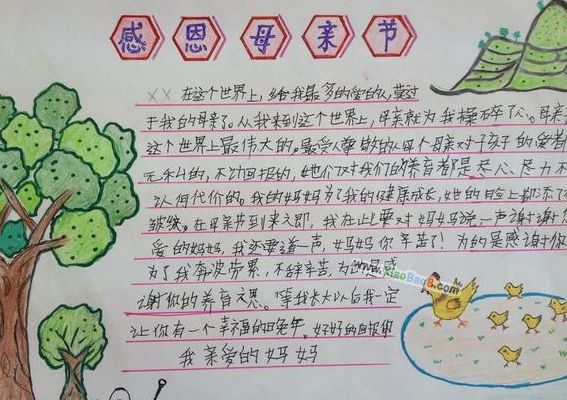 感恩母亲节
×× 在这个世界上，给我最多的爱的人，莫过
于我的母亲了。从我来到这个世界上，母亲就为我操碎了心。母亲
这个世界上最伟大的。最受人尊敬的人。每个母亲对子孩子的爱都
无私的，不计回报的，她们对我们的养育者都是尽心、尽力不
以何代价的。我的妈妈为了我的健康成长，她的脸上都添了
皱纹。在母亲节到来之即，我在此要对妈妈说一声谢谢
爱的妈妈，我还要道一声，妈妈你辛苦了！为的是感谢你
为了我奔波劳累，不辞辛苦，为的是感
谢你的养育之恩。等我长大以后我一定
让你有一个幸福的晚年。好好的回报你
我亲爱的妈妈
www.XiaoBao8.com